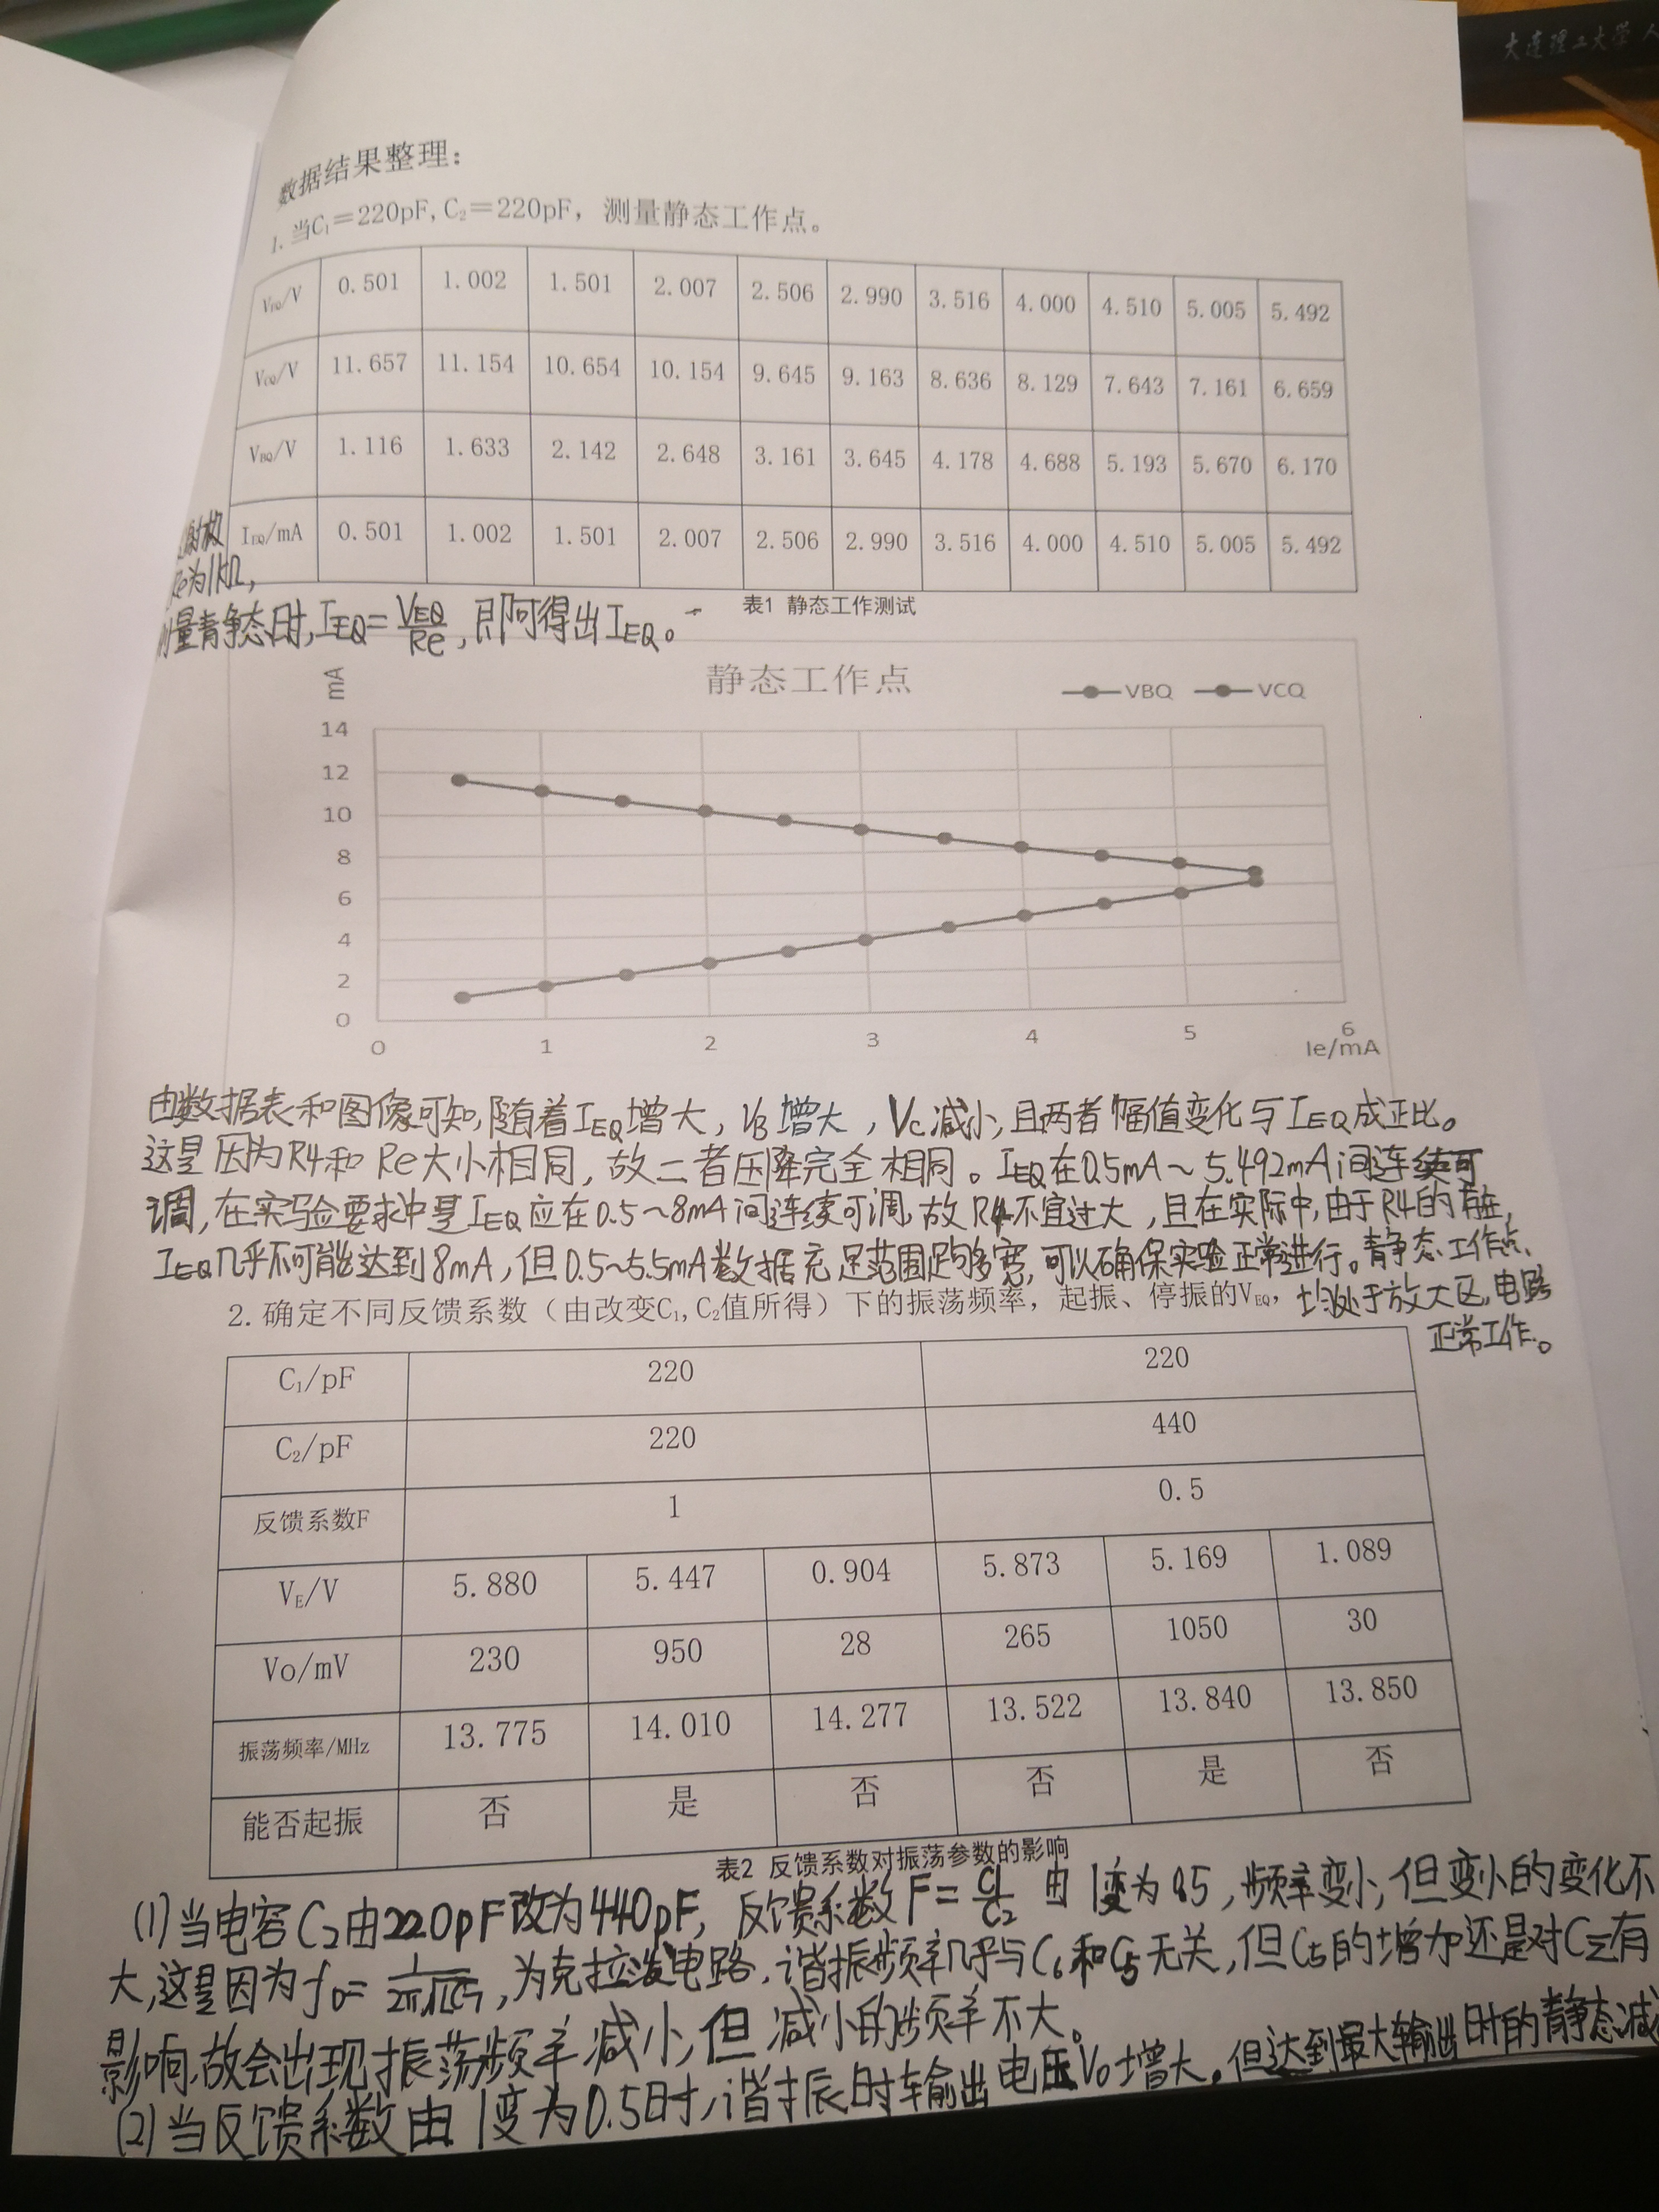 大连理工大学
数据结果整理：
1. 当C₁＝220pF, C₂＝220pF，测量静态工作点。
V_EQ/V 0.501 1.002 1.501 2.007 2.506 2.990 3.516 4.000 4.510 5.005 5.492
V_CQ/V 11.657 11.154 10.654 10.154 9.645 9.163 8.636 8.129 7.643 7.161 6.659
V_BQ/V 1.116 1.633 2.142 2.648 3.161 3.645 4.178 4.688 5.193 5.670 6.170
I_EQ/mA 0.501 1.002 1.501 2.007 2.506 2.990 3.516 4.000 4.510 5.005 5.492
射极
Re为1kΩ,
表1 静态工作测试
量静态时, I_EQ=V_EQ/Re, 即可得出I_EQ。
静态工作点
VBQ VCQ
mA
14
12
10
8
6
4
2
0
0 1 2 3 4 5 6
Ie/mA
由数据表和图像可知, 随着I_EQ增大, V_B增大, Vc减小, 且两者幅值变化与I_EQ成正比。
这是因为R4和Re大小相同, 故二者压降完全相同。I_EQ在0.5mA~5.492mA间连续可
调, 在实验要求中是I_EQ应在0.5~8mA间连续可调, 故R4不宜过大, 且在实际中, 由于R4的存在,
I_EQ几乎不可能达到8mA, 但0.5~5.5mA数据充足范围足够宽, 可以确保实验正常进行。静态工作点
2. 确定不同反馈系数（由改变C₁, C₂值所得）下的振荡频率，起振、停振的V_EQ，
均处于放大区, 电路
正常工作。
C₁/pF 220 220
C₂/pF 220 440
反馈系数F 1 0.5
V_E/V 5.880 5.447 0.904 5.873 5.169 1.089
Vo/mV 230 950 28 265 1050 30
振荡频率/MHz 13.775 14.010 14.277 13.522 13.840 13.850
能否起振 否 是 否 否 是 否
表2 反馈系数对振荡参数的影响
(1) 当电容C₂由220pF改为440pF, 反馈系数F=C₁/C₂由1变为0.5, 频率变小, 但变小的变化不
大, 这是因为f₀=, 为克拉泼电路, 谐振频率几乎与C₆和C₅无关, 但C₅的增加还是对C_Σ有
影响, 故会出现振荡频率减小, 但减小的频率不大。
(2) 当反馈系数由1变为0.5时, 谐振时输出电压Vo增大。但达到最大输出时的静态减